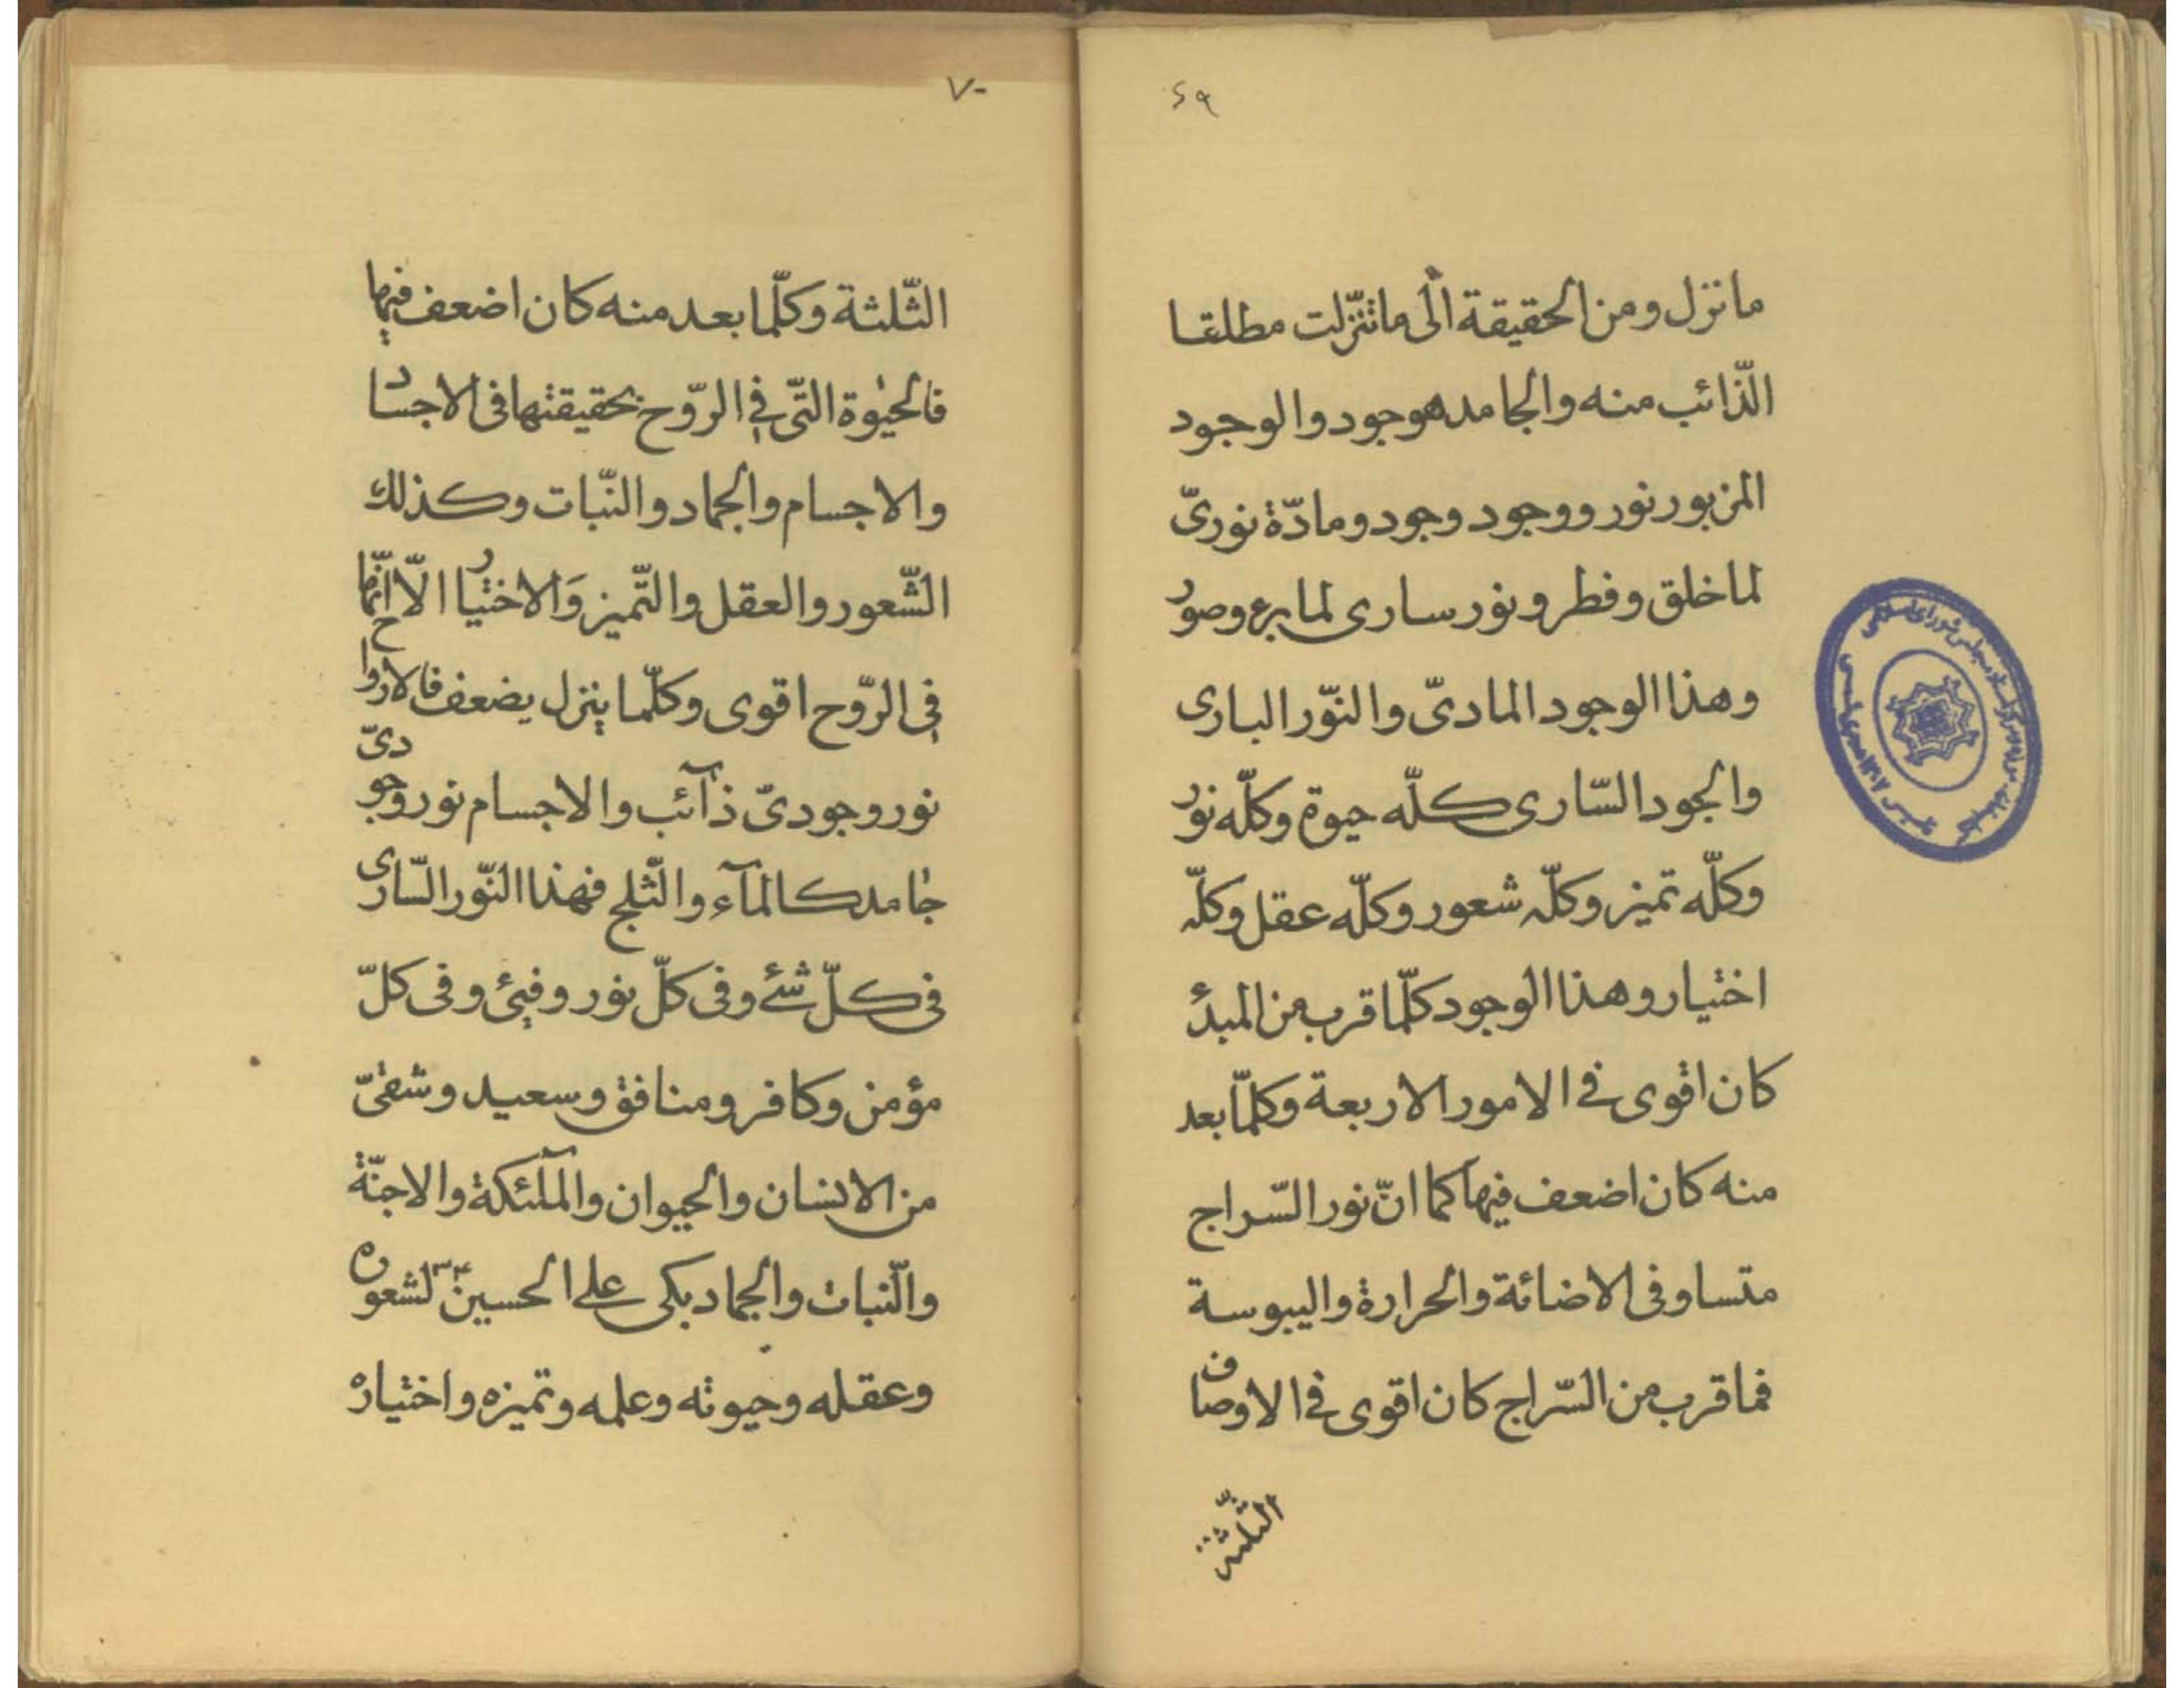 ۶۹
ما نزل ومن الحقيقة الّى ما تنزّلت مطلقا
الّذائب منه والجامد هو جود والوجود
المزبور نور ووجود وجود ومادّة نوریّ
لما خلق وفطر ونور ساری لما برء وصور
وهذا الوجود المادیّ والنّور الباری
والجود السّاری كلّه حيوة وكلّه نور
وكلّه تميز وكلّه شعور وكلّه عقل وكلّه
اختيار وهذا الوجود كلّما قرب من المبدء
كان اقوی فے الامور الاربعة وكلّما بعد
منه كان اضعف فيها كما انّ نور السّراج
متساو فی الاضائة والحرارة واليبوسة
فما قرب من السّراج كان اقوی فے الاوصاف
الثّلثة
۷۰
الثّلثة وكلّما بعد منه كان اضعف فيها
فالحيٰوة التّی فے الرّوح بحقيقتها فی الاجساد
والاجسام والجماد والنّبات وكذلك
الشّعور والعقل والتّميز وَالاختيار الّا انّها
فی الرّوح اقوی وكلّما ينزل يضعف فالارواح
نور وجودیّ ذآئب والاجسام نور وجودیّ
جامد كالمآء والثّلج فهذا النّور السّاری
فی كلّ شئے وفی كلّ نور وفیئ وفی كلّ
مؤمن وكافر ومنافق وسعيد وشقیّ
من الانسان والحيوان والملٓئكة والاجنّة
والنّبات والجماد بكی علے الحسينؑ لشعوره
وعقله وحيوته وعلمه وتميزه واختياره